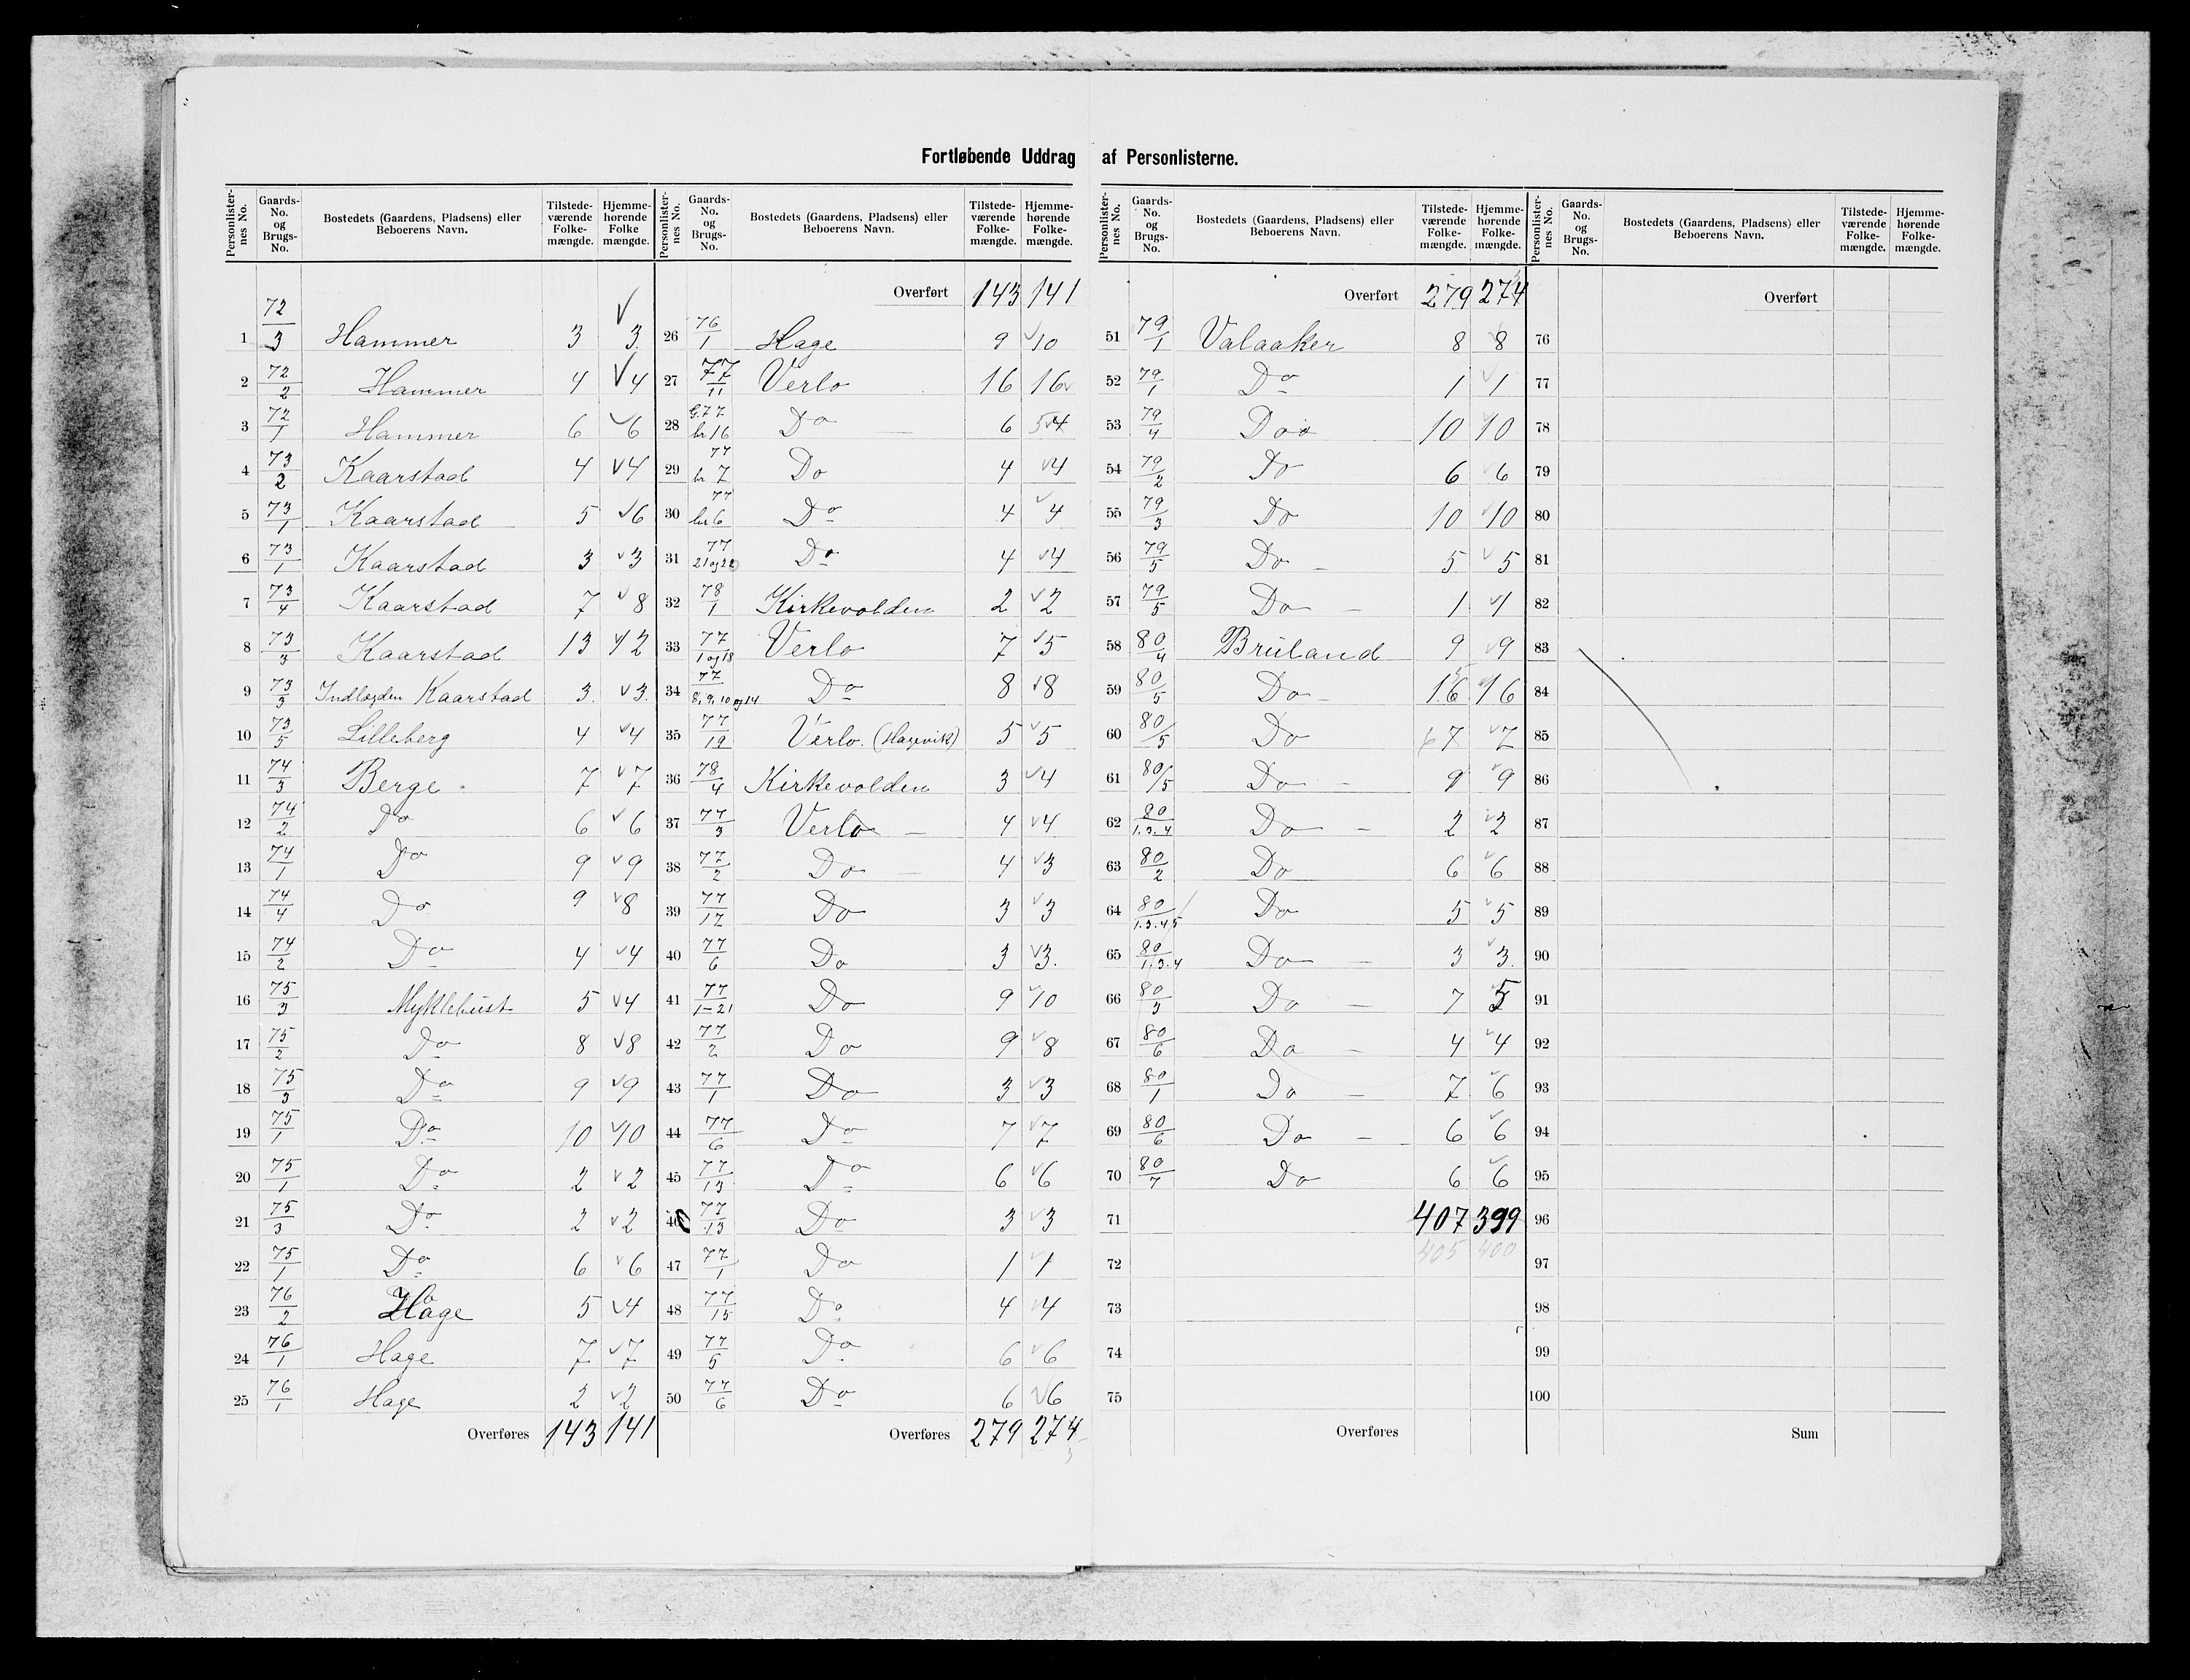 Fortløbende Uddrag af Personlisterne.
Personlisternes No. Gaards-No. og Brugs-No. Bostedets (Gaardens, Pladsens) eller Beboerens Navn. Tilstedeværende Folkemængde. Hjemmehørende Folkemængde.
1 72/3 Hammer 3 3
2 72/2 Hammer 4 4
3 72/1 Hammer 6 6
4 73/2 Kaarstad 4 4
5 73/1 Kaarstad 5 6
6 73/1 Kaarstad 3 3
7 73/4 Kaarstad 7 8
8 73/3 Kaarstad 13 12
9 73/3 Indlagden Kaarstad 3. 3.
10 73/5 Lilleberg 4 4
11 74/3 Berge. 7 7
12 74/2 Do 6 6
13 74/1 Do 9 9
14 74/4 Do 9 8
15 74/2 Do 4 4
16 75/3 Myklebust 5 4
17 75/2 Do 8 8
18 75/3 Do 9 9
19 75/1 Do 10 10
20 75/1 Do 2 2
21 75/3 Do 2 2
22 75/1 Do 6 6
23 76/2 Hage 5 4
24 76/1 Hage 7 7
25 76/1 Hage 2 2
Overføres 143 141
Personlisternes No. Gaards-No. og Brugs-No. Bostedets (Gaardens, Pladsens) eller Beboerens Navn. Tilstedeværende Folkemængde. Hjemmehørende Folkemængde.
Overført 143 141
26 76/1 Hage 9 10
27 77/11 Verlo 16 16
28 G.77 br 16 Do 6 5 4
29 77 br 7 Do 4 4
30 77 br 6 Do 4 4
31 77/21 og 22 Do 4 4
32 78/1 Kirkevolden 2 2
33 77/1 og 18 Verlo 7 5
34 77/8, 9, 10 og 14 Do 8 8
35 77/19 Verlo. (Hagevik) 5 5
36 78/4 Kirkevolden 3 4
37 77/3 Verlo 4 4
38 77/2 Do 4 3
39 77/12 Do 3 3
40 77/6 Do 3 3.
41 77/1-21 Do 9 10
42 77/2 Do 9 8
43 77/1 Do 3 3
44 77/6 Do 7 7
45 77/13 Do 6 6
46 77/13 Do 3 3
47 77/1 Do 1 1
48 77/15 Do 4 4
49 77/5 Do 6 6
50 77/6 Do 6 6
Overføres 279 274
Personlisternes No. Gaards-No. og Brugs-No. Bostedets (Gaardens, Pladsens) eller Beboerens Navn. Tilstedeværende Folkemængde. Hjemmehørende Folkemængde.
Overført 279 274
51 79/1 Valaaker 8 8
52 79/1 Do 1 1
53 79/4 Do 10 10
54 79/2 Do 6 6
55 79/3 Do 10 10
56 79/5 Do 5 5
57 79/5 Do 1 1
58 80/4 Bruland 9 9
59 80/5 Do 16 16
60 80/5 Do 7 7
61 80/5 Do 9 9
62 80/1.3.4 Do 2 2
63 80/2 Do 6 6
64 80/1.3.4 5 Do 5 5
65 80/1.3.4 Do 3 3
66 80/3 Do 7 5
67 80/6 Do 4 4
68 80/1 Do 7 6
69 80/6 Do 6 6
70 80/7 Do 6 6
71 407 399
72 405 400
73
74
75
Overføres
Personlisternes No. Gaards-No. og Brugs-No. Bostedets (Gaardens, Pladsens) eller Beboerens Navn. Tilstedeværende Folkemængde. Hjemmehørende Folkemængde.
Overført
76
77
78
79
80
81
82
83
84
85
86
87
88
89
90
91
92
93
94
95
96
97
98
99
100
Sum